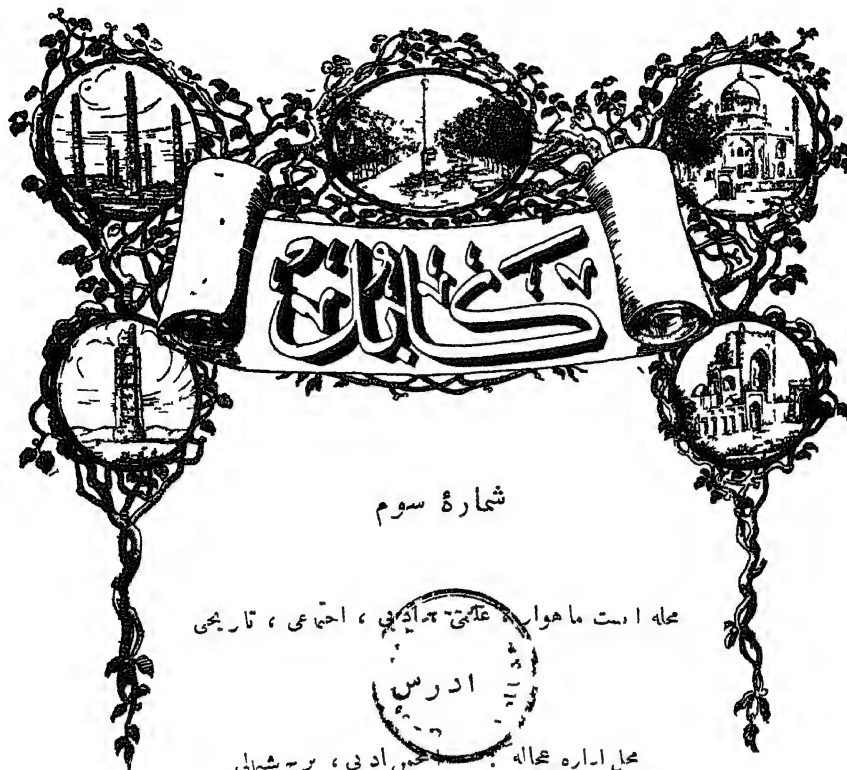 کابل
شمارهٔ سوم
مجله ایست ماهوار ، علمی ، ادبی ، اجتماعی ، تاریخی
ادرس
محل اداره مجله انجمن ادبی ، برج شمالی